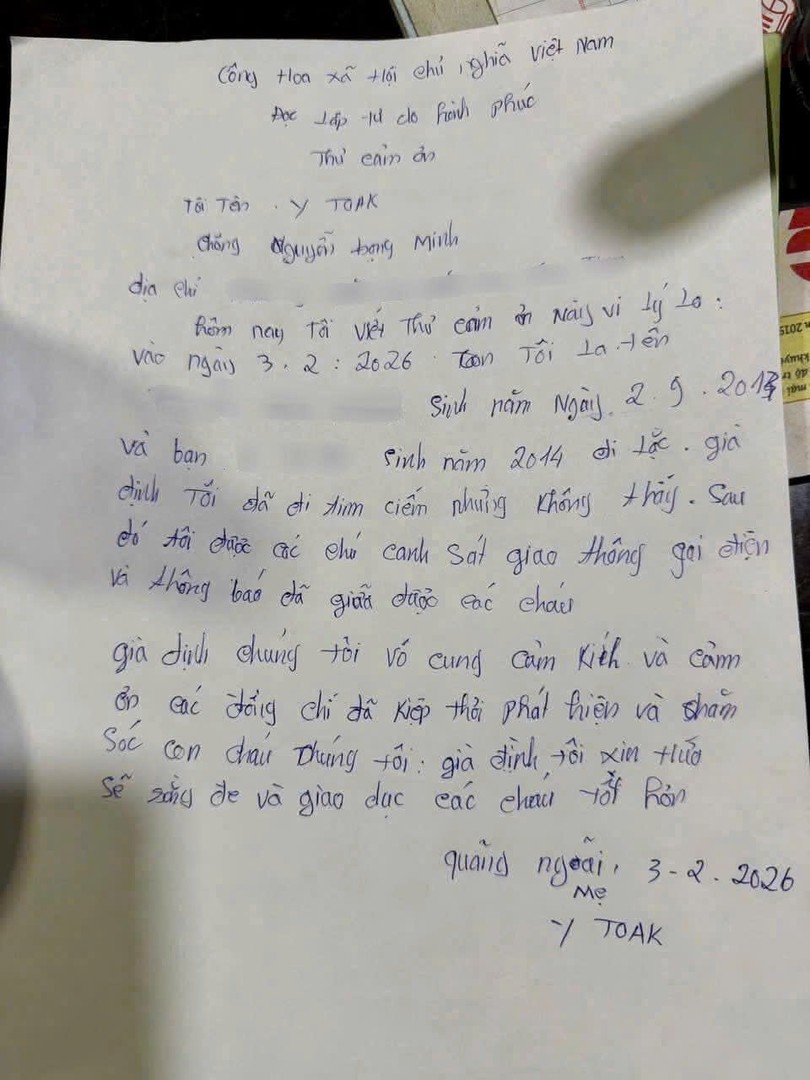 Công Hoa xã Hội chủ nghĩa việt Nam
Đọc Lập -Tự do hành phúc
Thư cảm ơn
Tôi Tên . Y TOAK
chồng Nguyễn trọng Minh
địa chỉ
hôm nay Tôi viết Thư cảm ơn Này vì lý Do :
vào ngày 3 . 2 : 2026 . con Tôi La . tên
Sinh năm Ngày 2 . 9 . 2013
và bạn sinh năm 2014 đi Lạc . già
định Tối đã đi tìm ciếm nhưng không thấy . Sau
đó tôi được các chú canh Sát giao thông gọi điện
và thông báo đã giữa được các cháu
già định chúng tôi vố cung cảm kích và cảm
ơn các đồng chí đã kiệp thời phát hiện và chăm
Sóc con cháu chúng tôi : già định tôi xin Hứa
Sẽ răng đe và giao dục các cháu tốt hơn
quãng ngoãi , 3 - 2 . 2026
Mẹ
Y TOAK
2015